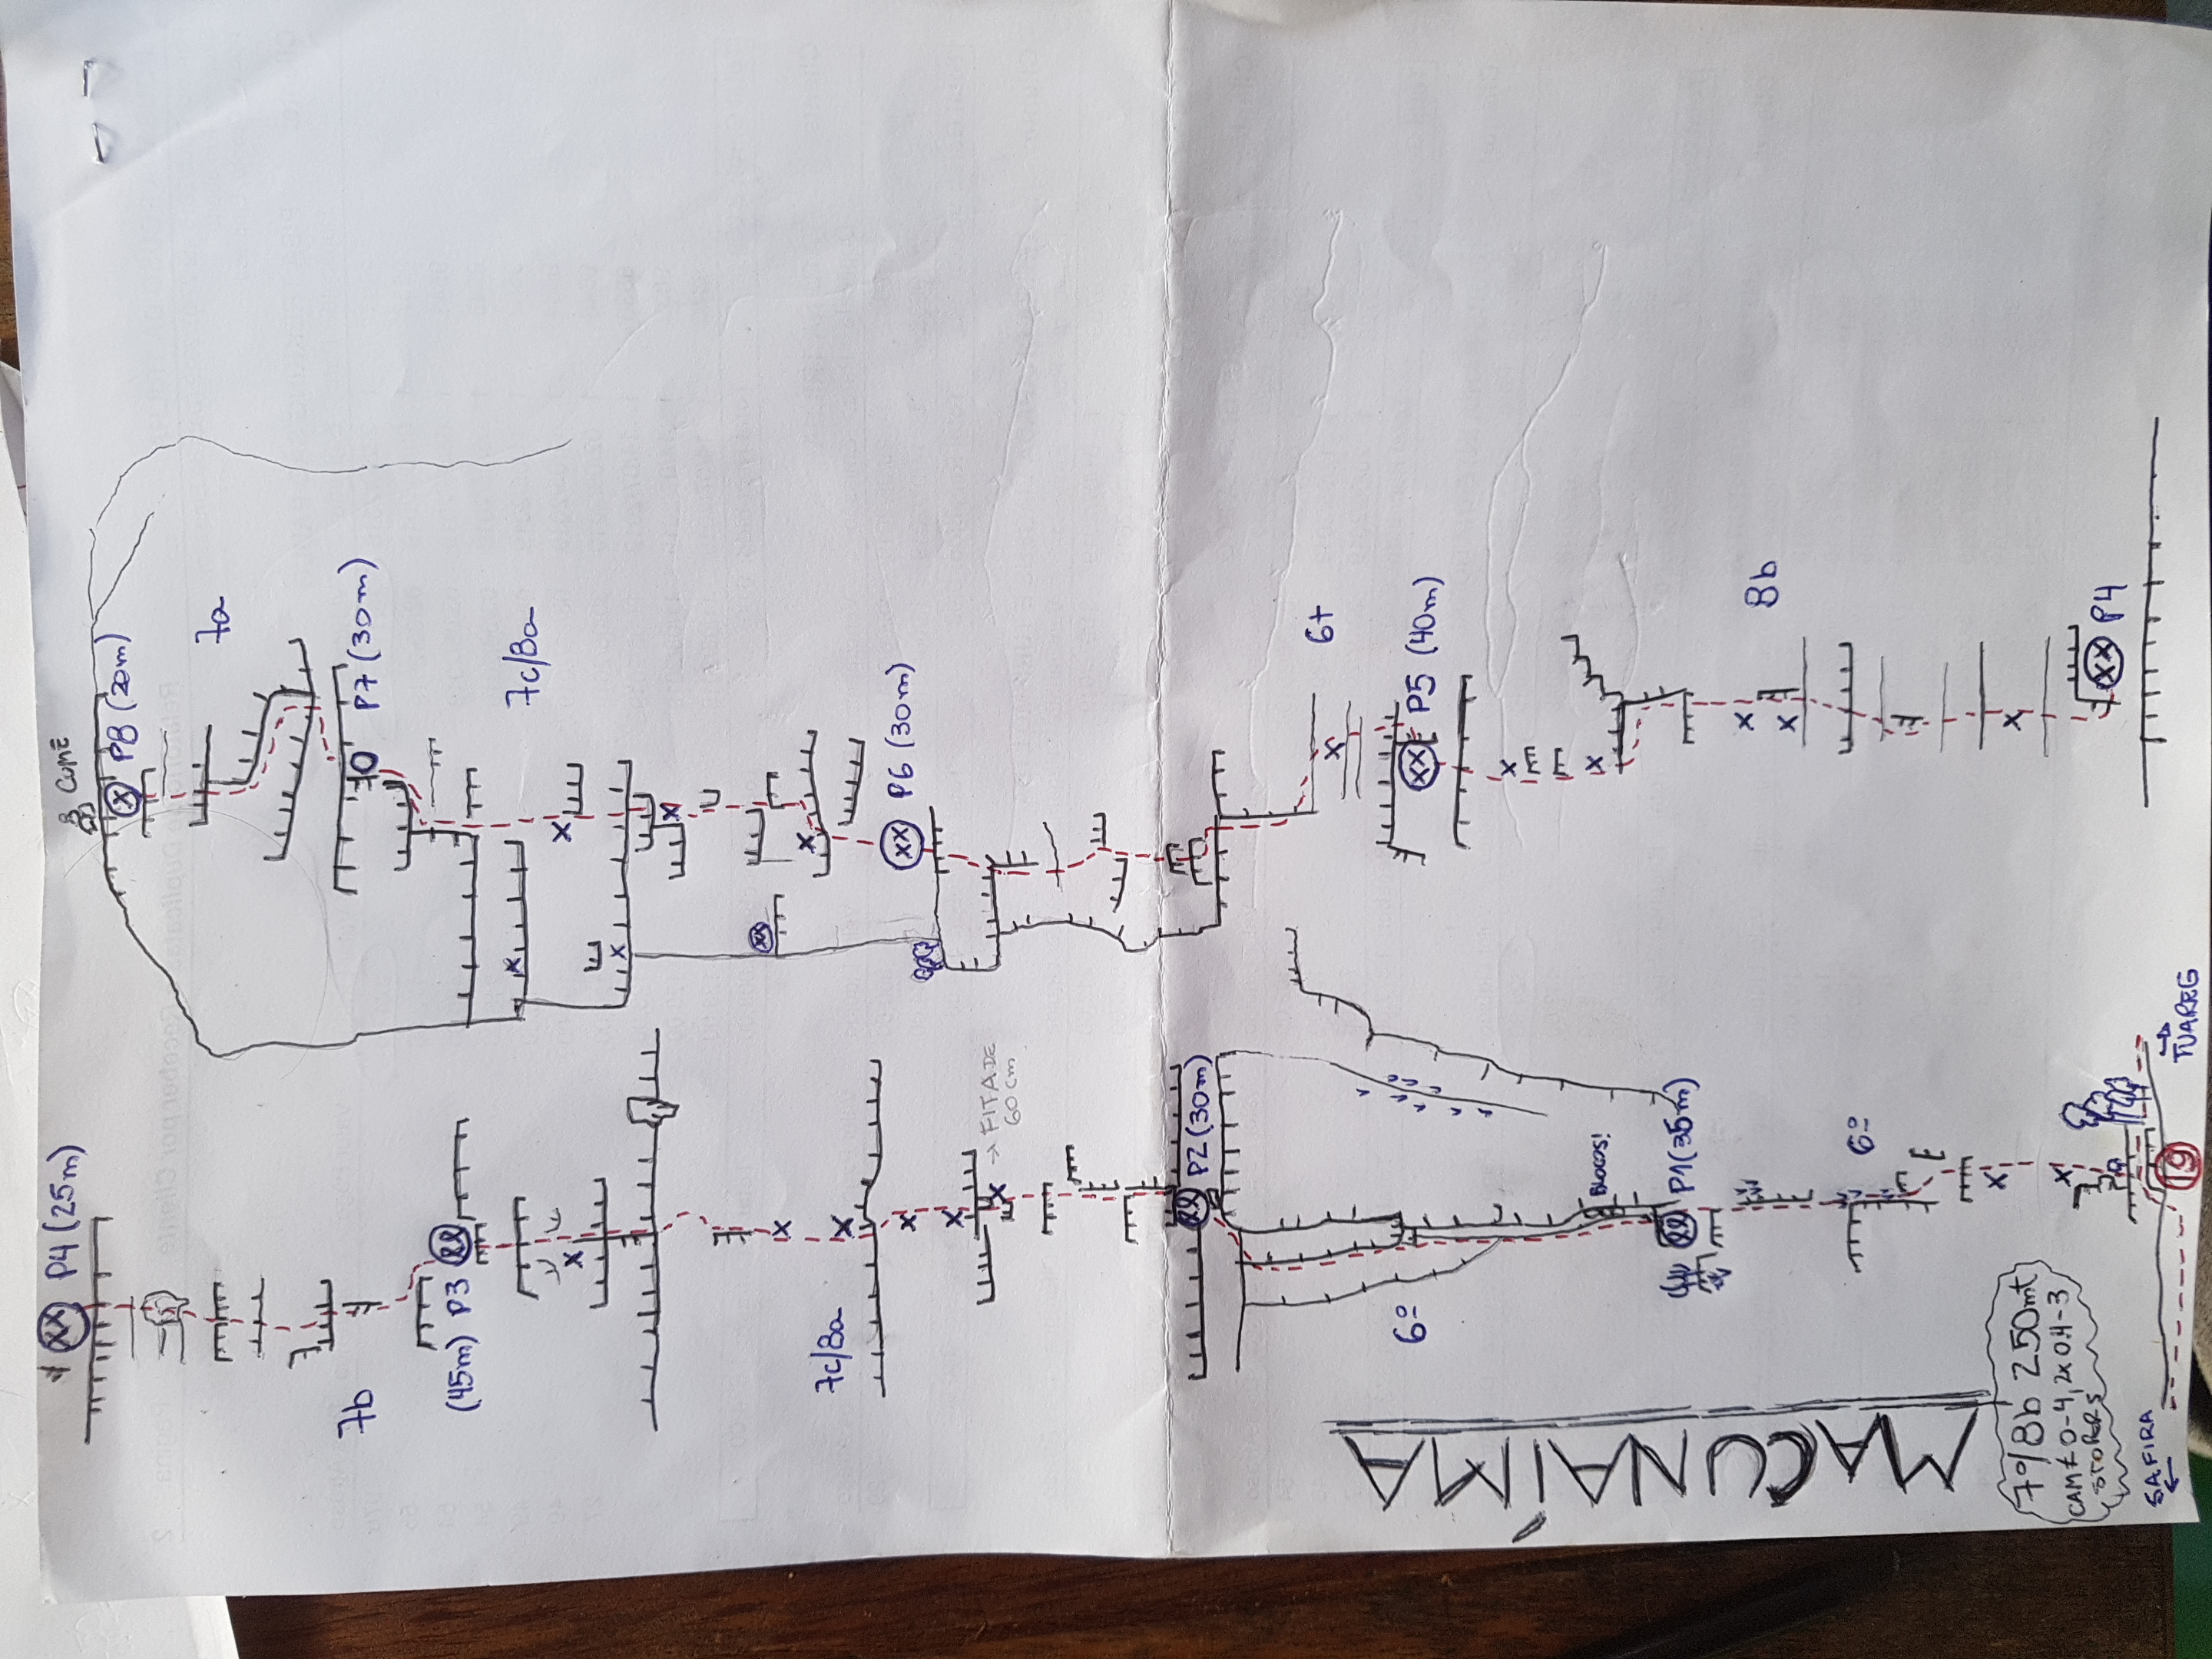 MACUNAÍMA
7º/8b 250mt
CAM# 0-4, 2x 0.4-3
STOPERS
SAFIRA
←
19
→
TUAREG
6º
P1 (35m)
BLOCOS!
6º
P2 (30m)
→ FITA DE
60 cm
7c/8a
(45m) P3
7b
P4 (25m)
P4
8b
P5 (40m)
6+
P6 (30m)
7c/8a
P7 (30m)
7a
P8 (20m)
CUME